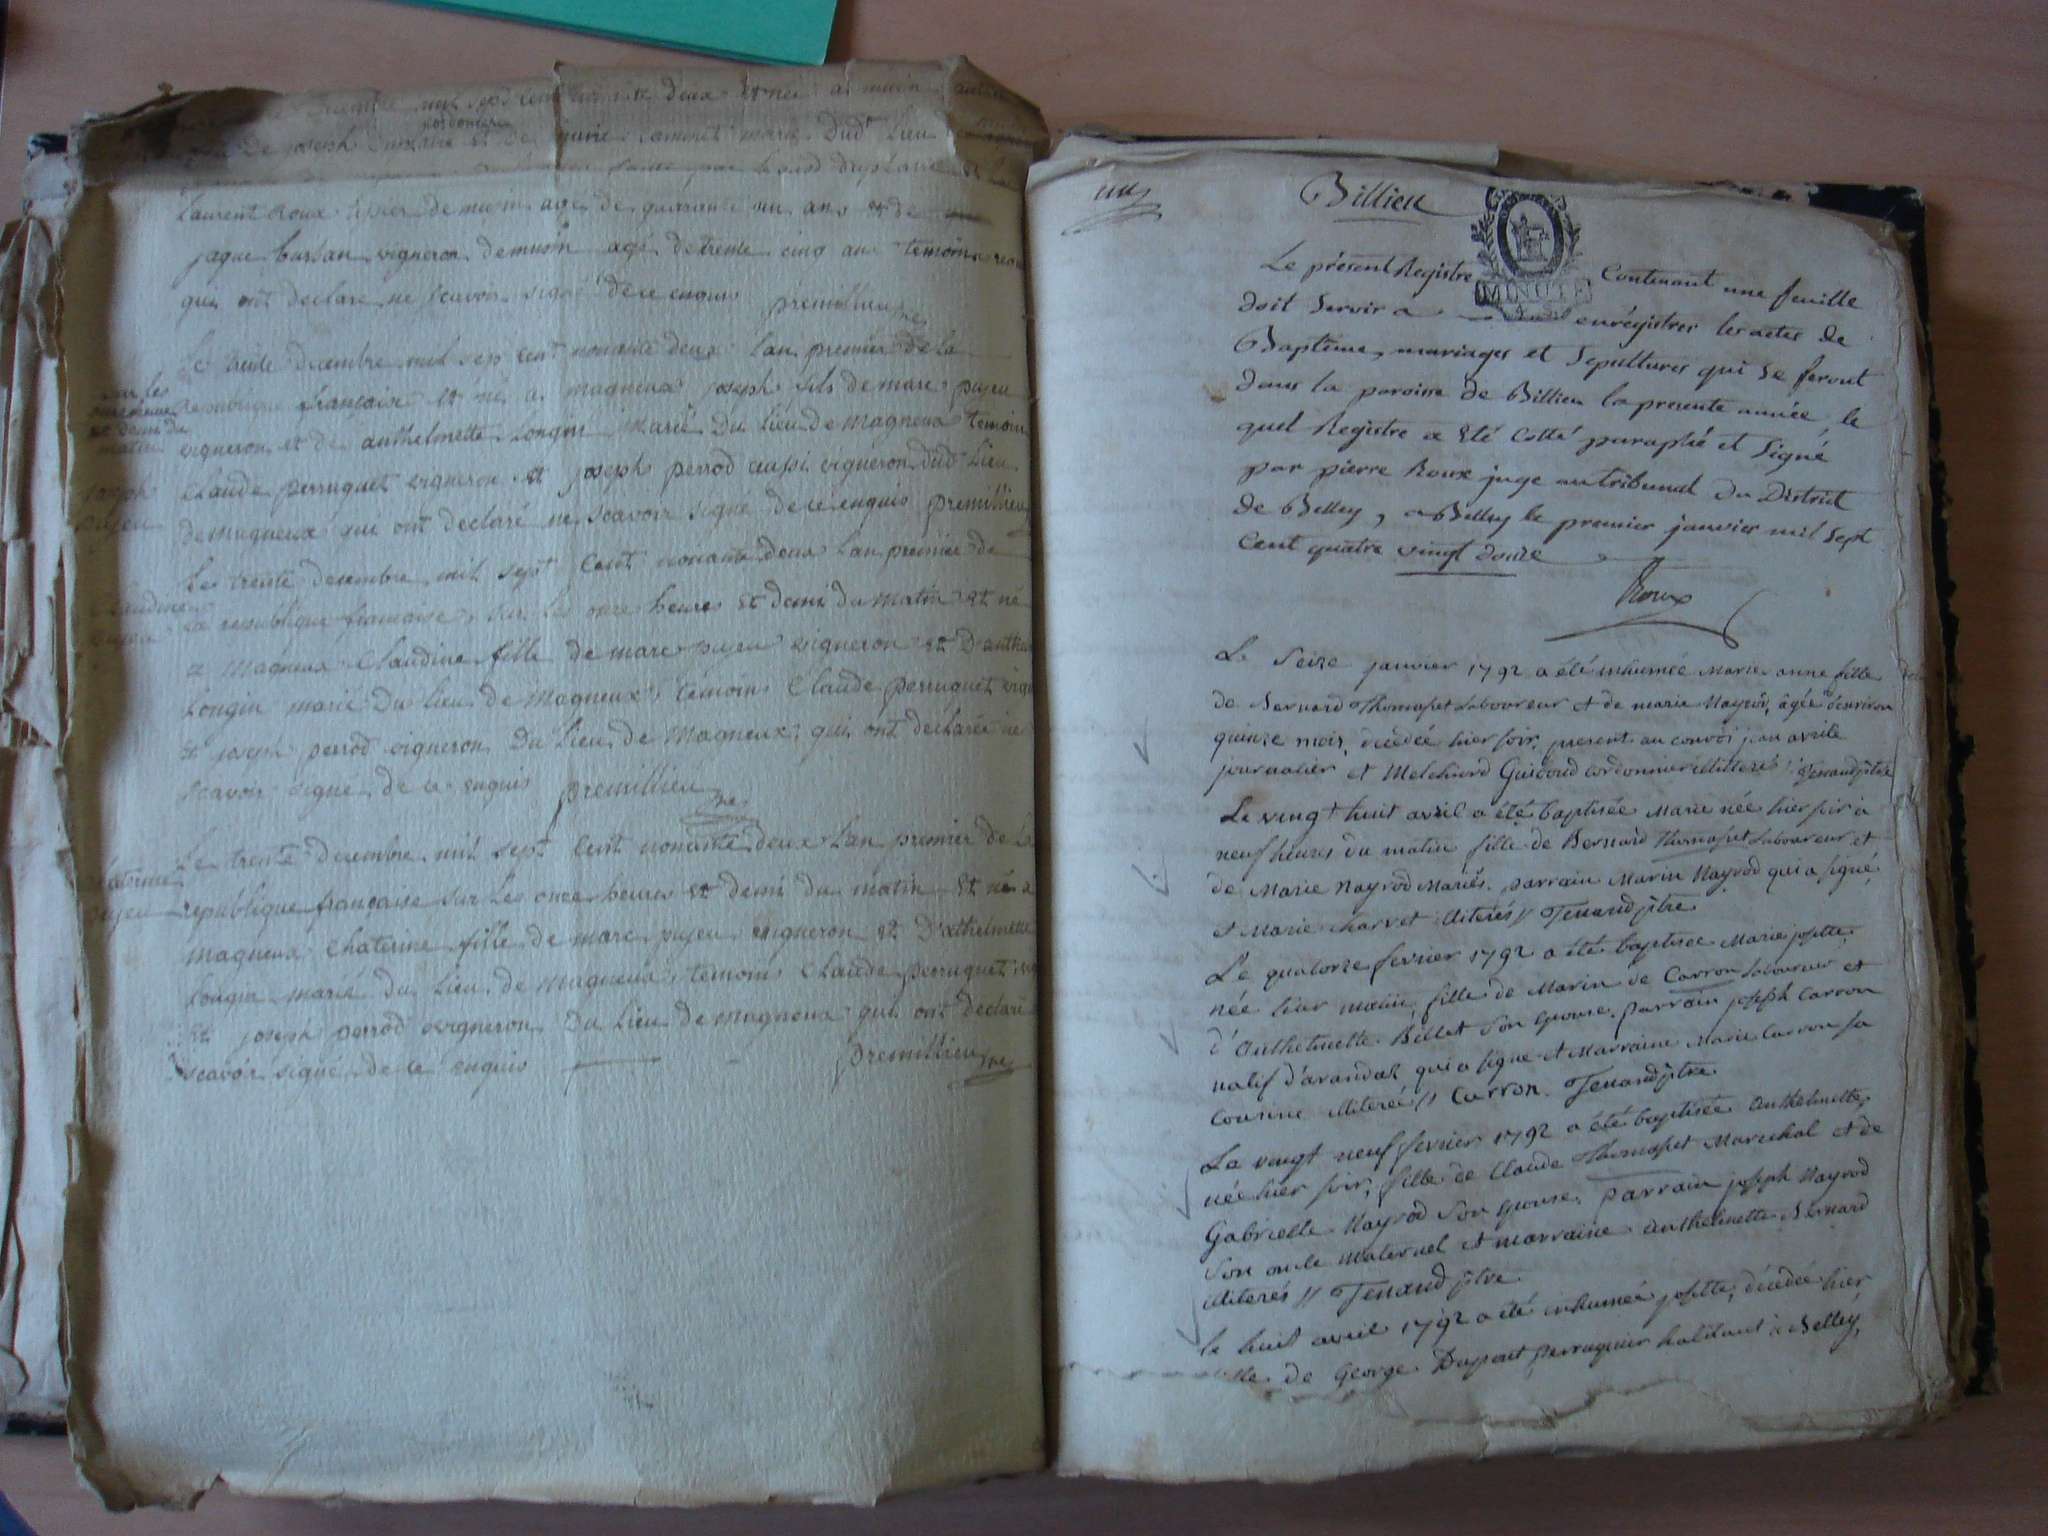 mil sept cent nonante deux Est née a musin
cordonier
de joseph et de marie dud lieu
faite par
Laurent Roux tissier de musin agé de quarante un ans et de
jaque burban vigneron de musin agé de trente cinq ans temoins
qui ont declaré ne scavoir signé de ce enquis premillieu
Le trente decembre mil sept cent nonante deux lan premier de la
sur les
onze heures
et demi du
matin
Republique françaice Et né a magneux joseph fils de marc pujeu
vigneron et de anthelmette Longin Marié Du lieu de Magneux temoin
joseph
pujeu
Claude perruquet vigneron Et joseph perrod aussi vigneron dud lieu
de magneux qui ont declaré ne scavoir signé de ce enquis premillieu
Le trente decembre mil sept Cent nonante deux Lan premier de
Claudine
pujeu
La republique francaise, sur les onze heures Et demi du matin Et né
a Magneux Claudine fille de marc pujeu vigneron Et
Longin marié Du lieu de Magneux, temoins Claude perruquet
Et joseph perrod vigneron Du lieu de Magneux qui ont declaré ne
scavoir signé de ce enquis premillieu
Le trente decembre mil sept Cent nonante deux Lan premier de La
pujeu
republique françaice sur les onze heures Et demi du matin Et né a
magneux Chaterine fille de marc pujeu vigneron Et D'athelmette
Longin marié du lieu de magneux, temoins Claude perruquet
Et joseph perrod vigneron Du lieu de magneux qui ont declaré
scavoir signé de ce enquis premillieu
Billieu
MINUTE
Le présent Registre Contenant une feuille
doit servir a enrégistrer les actes de
Baptême, mariages et Sepultures qui se feront
dans la paroisse de Billieu la presente année, le
quel Registre a Eté Cotté paraphé et Signé
par pierre Roux juge au tribunal du District
de Belley, a Belley le premier janvier mil sept
Cent quatre vingt douze
Roux
Le seize janvier 1792 a été inhumée Marie anne fille
de Bernard Thomasset Laboureur et de marie Nayrod, âgée d'environ
quinze mois, décédée hier soir, present au convoi jean
journalier et Melchiord Guicoud cordonnier illiterés Tenand ptre
Le vingt huit avril a été baptisée Marie née hier soir à
neuf heures du matin fille de Bernard Thomasset Laboureur et
de Marie Nayrod Mariés. parrain Marin Nayrod qui a signé,
et Marie Charvet illiterés // Tenand ptre
Le quatorze fevrier 1792 a été baptisée Marie josette,
née hier matin, fille de Marin de Carron Laboureur et
d'Anthelmette Billet son epouse. parrain joseph Carron
natif d'arandas qui a signé et Marraine Marie Carron sa
cousine illiterée // Carron. Tenand ptre
Le vingt neuf fevrier 1792 a été baptisée anthelmette,
née hier soir, fille de Claude Thomasset Marechal et de
Gabrielle Nayrod son epouse. parrain joseph Nayrod
son oncle maternel et marraine anthelmette Bernard
illiterés // Tenand ptre
le huit avril 1792 a été inhumée josette, décédée hier,
fille de George Dupont perruquier habitant à Belley,